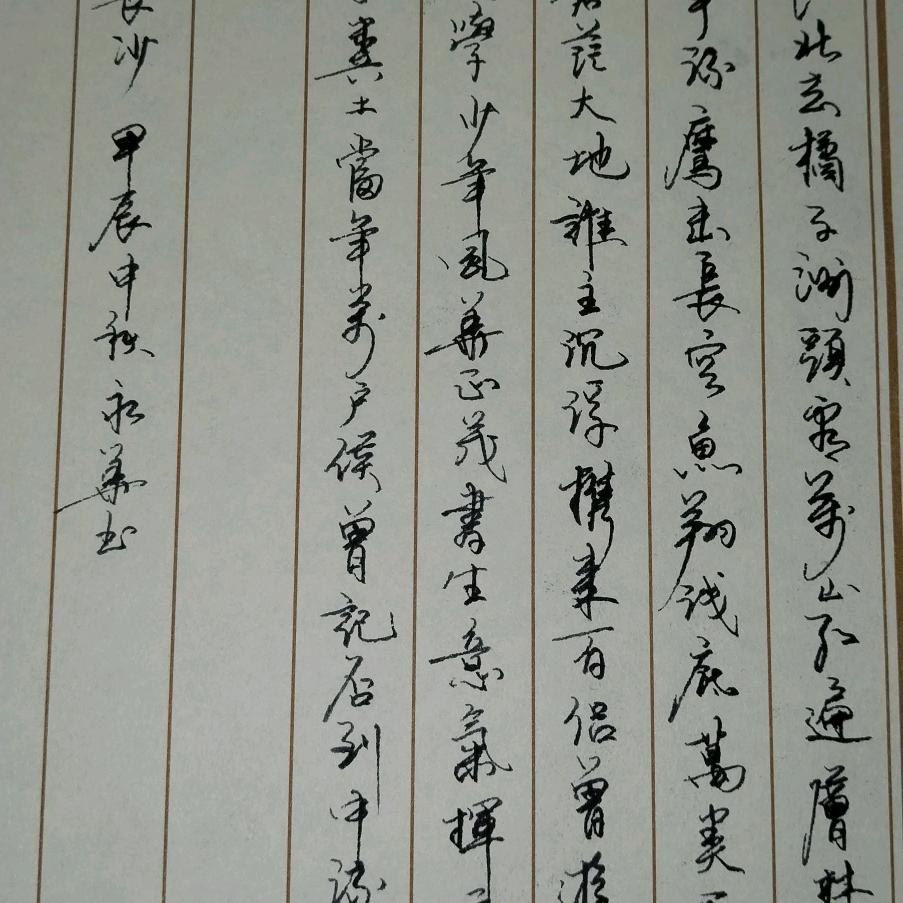 北去橘子洲頭看萬山紅遍層林
流鷹击長空魚翔浅底萬类
茫大地誰主沉浮攜来百侣曾游
學少年風華正茂書生意氣揮
糞土當年萬户侯曾記否到中流
長沙 甲辰中秋永華书